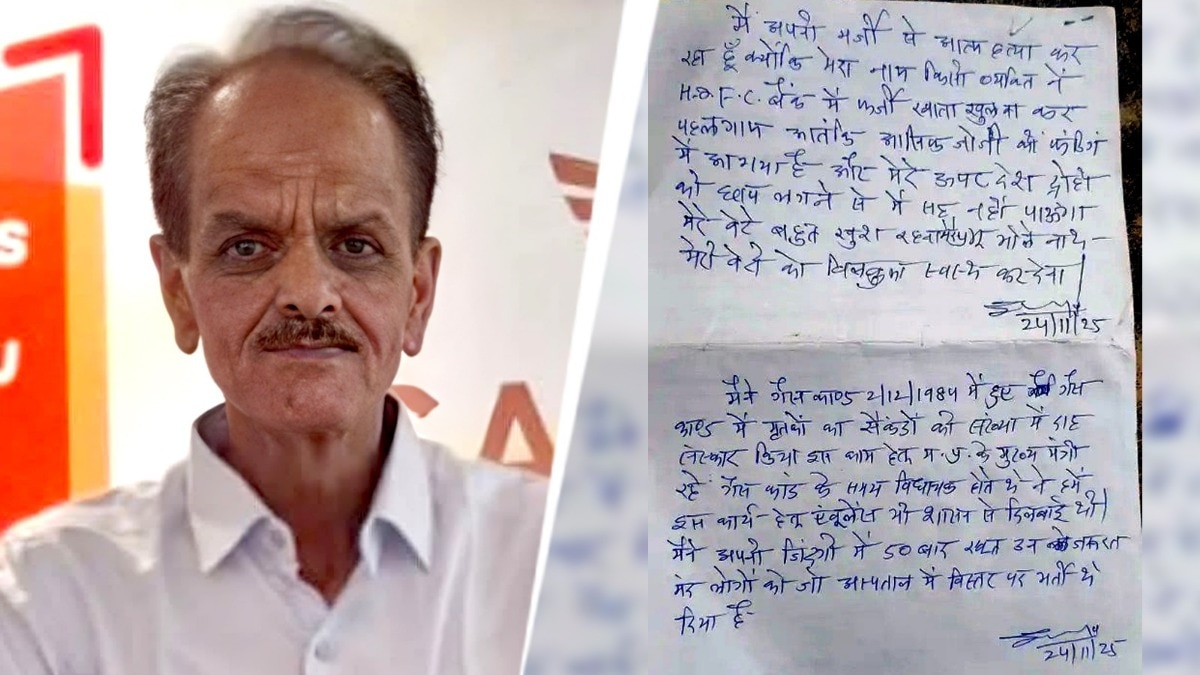 S
U
SA
मैं अपनी मर्जी से आत्म हत्या कर
रहा हूँ क्योंकि मेरा नाम किसी व्यक्ति ने
H.D.F.C. बैंक में फर्जी खाता खुलवा कर
पहलगाम आतंकि आसिफ जोजी की फंडिंग
में आ गया है और मेरे ऊपर देश द्रोही
की छाप लगने से मैं सह नहीं पाऊंगा
मेरे बेटे बहुत खुश रहना भोले नाथ
मेरी बेटी को बिलकुल स्वस्थ करदेना
24/11/25
मैंने गैस काण्ड 2/12/1984 में हुए गैस
काण्ड में मृतकों का सैकंडों की संख्या में दाह
संस्कार किया इस काम हेतु म.प्र. के मुख्य मंत्री
रहे गैस कांड के समय विधायक होते थे ने हमें
इस कार्य हेतु एंबूलेंस भी शासन से दिलवाई थी।
मैंने अपनी जिंदगी में 50 बार रक्त उन जरूरत
मंद लोगों को जो अस्पताल में बिस्तर पर भर्ती थे
दिया है-
24/11/25